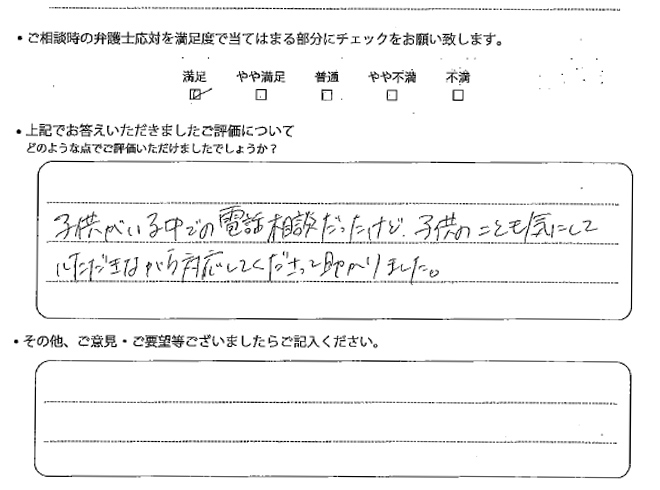 ・ご相談時の弁護士応対を満足度で当てはまる部分にチェックをお願い致します。
満足 やや満足 普通 やや不満 不満
☑ □ □ □ □
・上記でお答えいただきましたご評価について
どのような点でご評価いただけましたでしょうか？
子供がいる中での電話相談だったけど、子供のことも気にして
いただきながら対応してくださって助かりました。
・その他、ご意見・ご要望等ございましたらご記入ください。